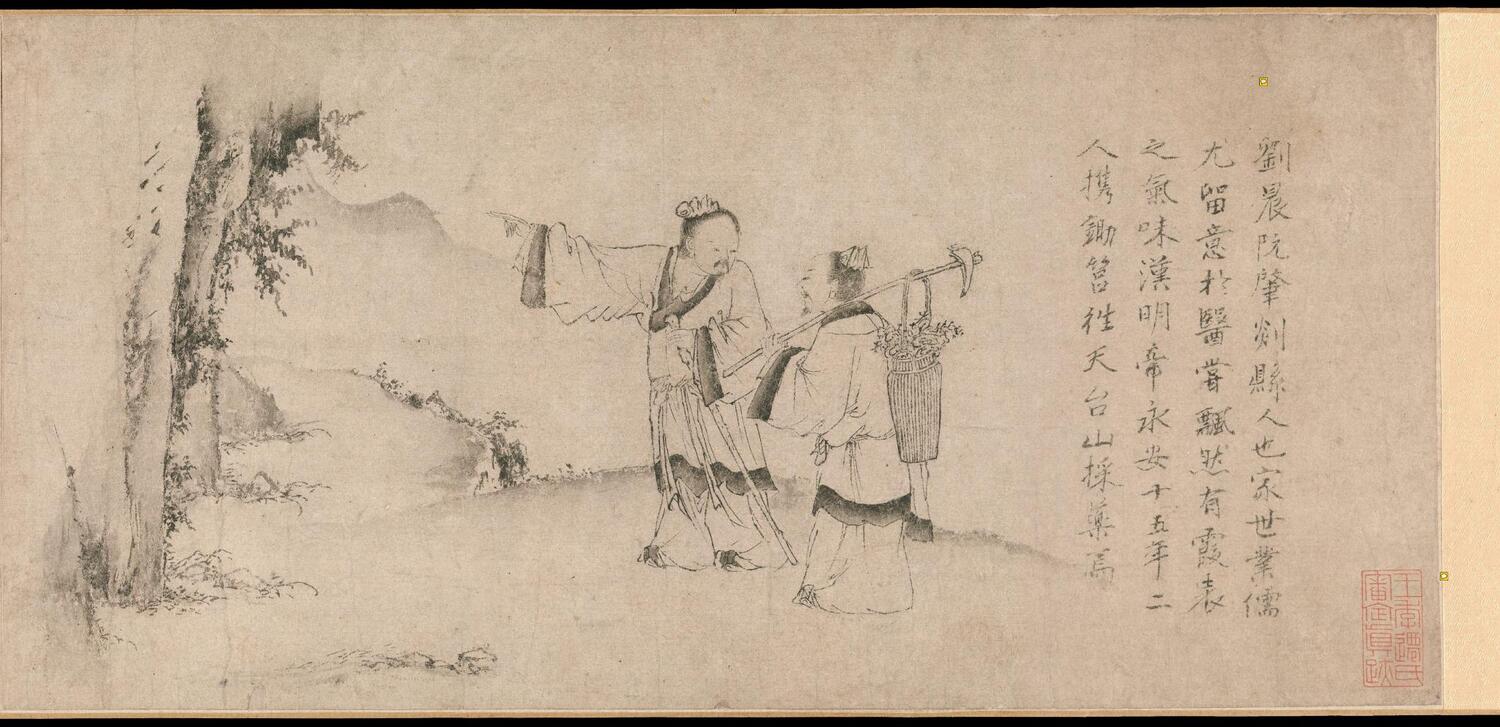 劉晨阮肇剡縣人也家世業儒
尤留意於醫嘗飄然有霞表
之氣味漢明帝永安十五年二
人攜鋤筥往天台山採藥焉
王季遷氏
審定真跡